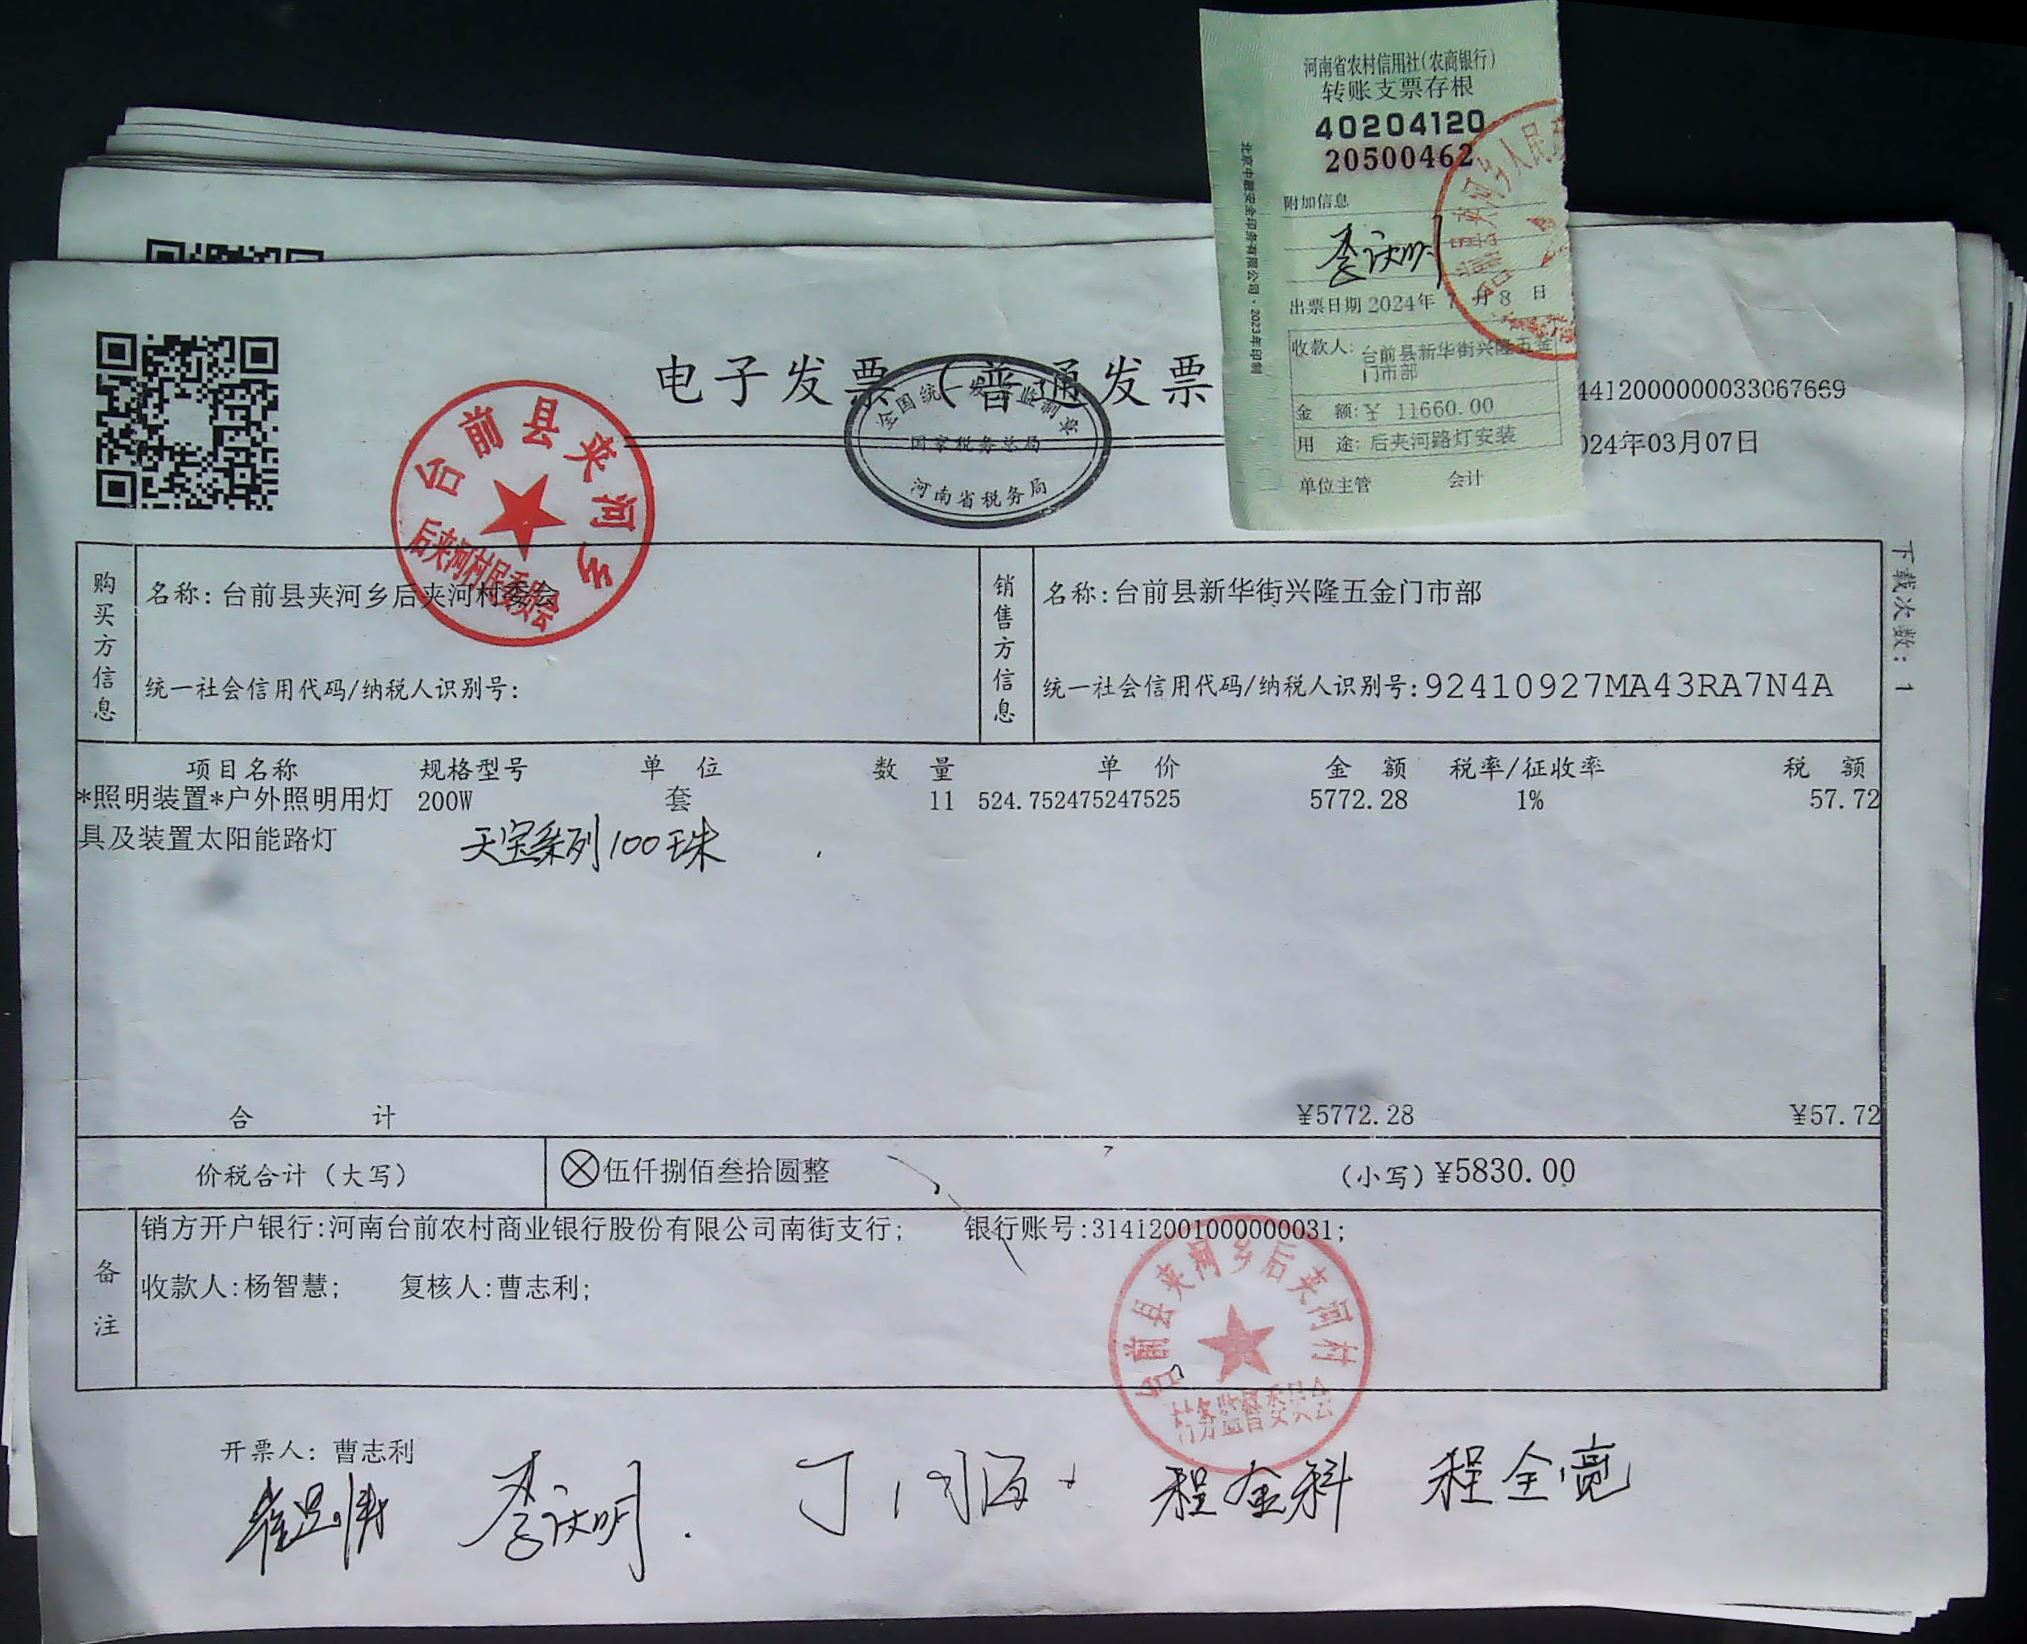 河南省农村信用社(农商银行)
转账支票存根
40204120
20500462
附加信息
出票日期2024年7月8日
收款人:台前县新华街兴隆五金
门市部
金 额:¥ 11660.00
用 途:后夹河路灯安装
单位主管 会计
北京中融安全印务有限公司·2023年印制
电子发票(普通发票
全国统一发票监制章
国家税务总局
河南省税务局
4412000000033067669
024年03月07日
台前县夹河乡
后夹河村民委员会
下载次数:1
购买方信息
名称:台前县夹河乡后夹河村委会
统一社会信用代码/纳税人识别号:
销售方信息
名称:台前县新华街兴隆五金门市部
统一社会信用代码/纳税人识别号:92410927MA43RA7N4A
项目名称 规格型号 单位 数量 单价 金额 税率/征收率 税额
*照明装置*户外照明用灯 200W 套 11 524.752475247525 5772.28 1% 57.72
具及装置太阳能路灯
天宝系列100珠
合计 ¥5772.28 ¥57.72
价税合计(大写) ⊗伍仟捌佰叁拾圆整 (小写)¥5830.00
备注
销方开户银行:河南台前农村商业银行股份有限公司南街支行; 银行账号:31412001000000031;
收款人:杨智慧; 复核人:曹志利;
台前县夹河乡后夹河村
村务监督委员会
开票人:曹志利
李庆明 程金科 程全宽